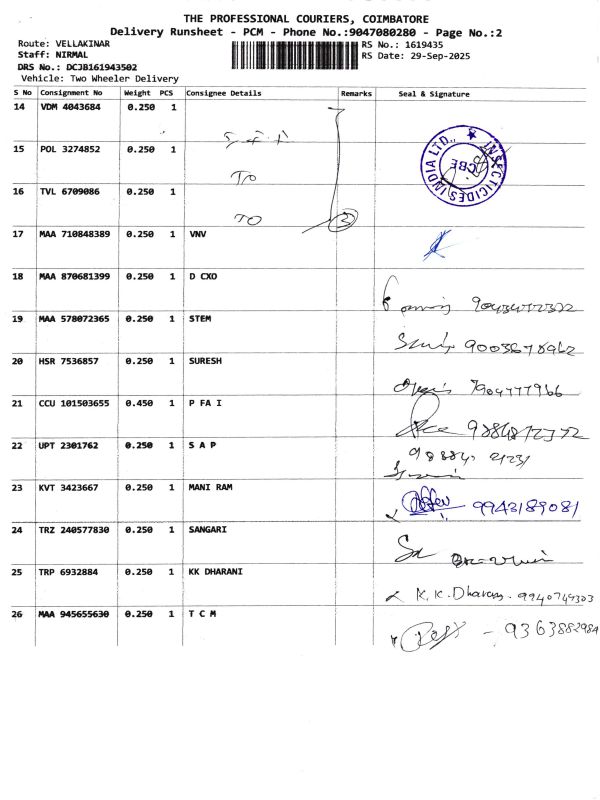 THE PROFESSIONAL COURIERS, COIMBATORE
Delivery Runsheet - PCM - Phone No.:9047080280 - Page No.:2
Route: VELLAKINAR
RS No.: 1619435
Staff: NIRMAL
RS Date: 29-Sep-2025
DRS No.: DCJB161943502
Vehicle: Two Wheeler Delivery
S No Consignment No Weight PCS Consignee Details Remarks Seal & Signature
14 VDM 4043684 0.250 1
15 POL 3274852 0.250 1
INSECTICIDES INDIA LTD., CBE
TO
16 TVL 6709086 0.250 1
TO 3
17 MAA 710848389 0.250 1 VNV
18 MAA 870681399 0.250 1 D CXO
19 MAA 578072365 0.250 1 STEM
20 HSR 7536857 0.250 1 SURESH
7904777966
21 CCU 101503655 0.450 1 P FA I
22 UPT 2301762 0.250 1 S A P
23 KVT 3423667 0.250 1 MANI RAM
9943189081
24 TRZ 240577830 0.250 1 SANGARI
25 TRP 6932884 0.250 1 KK DHARANI
K. K. Dharani. 9940749303
26 MAA 945655630 0.250 1 T C M
- 9363882984